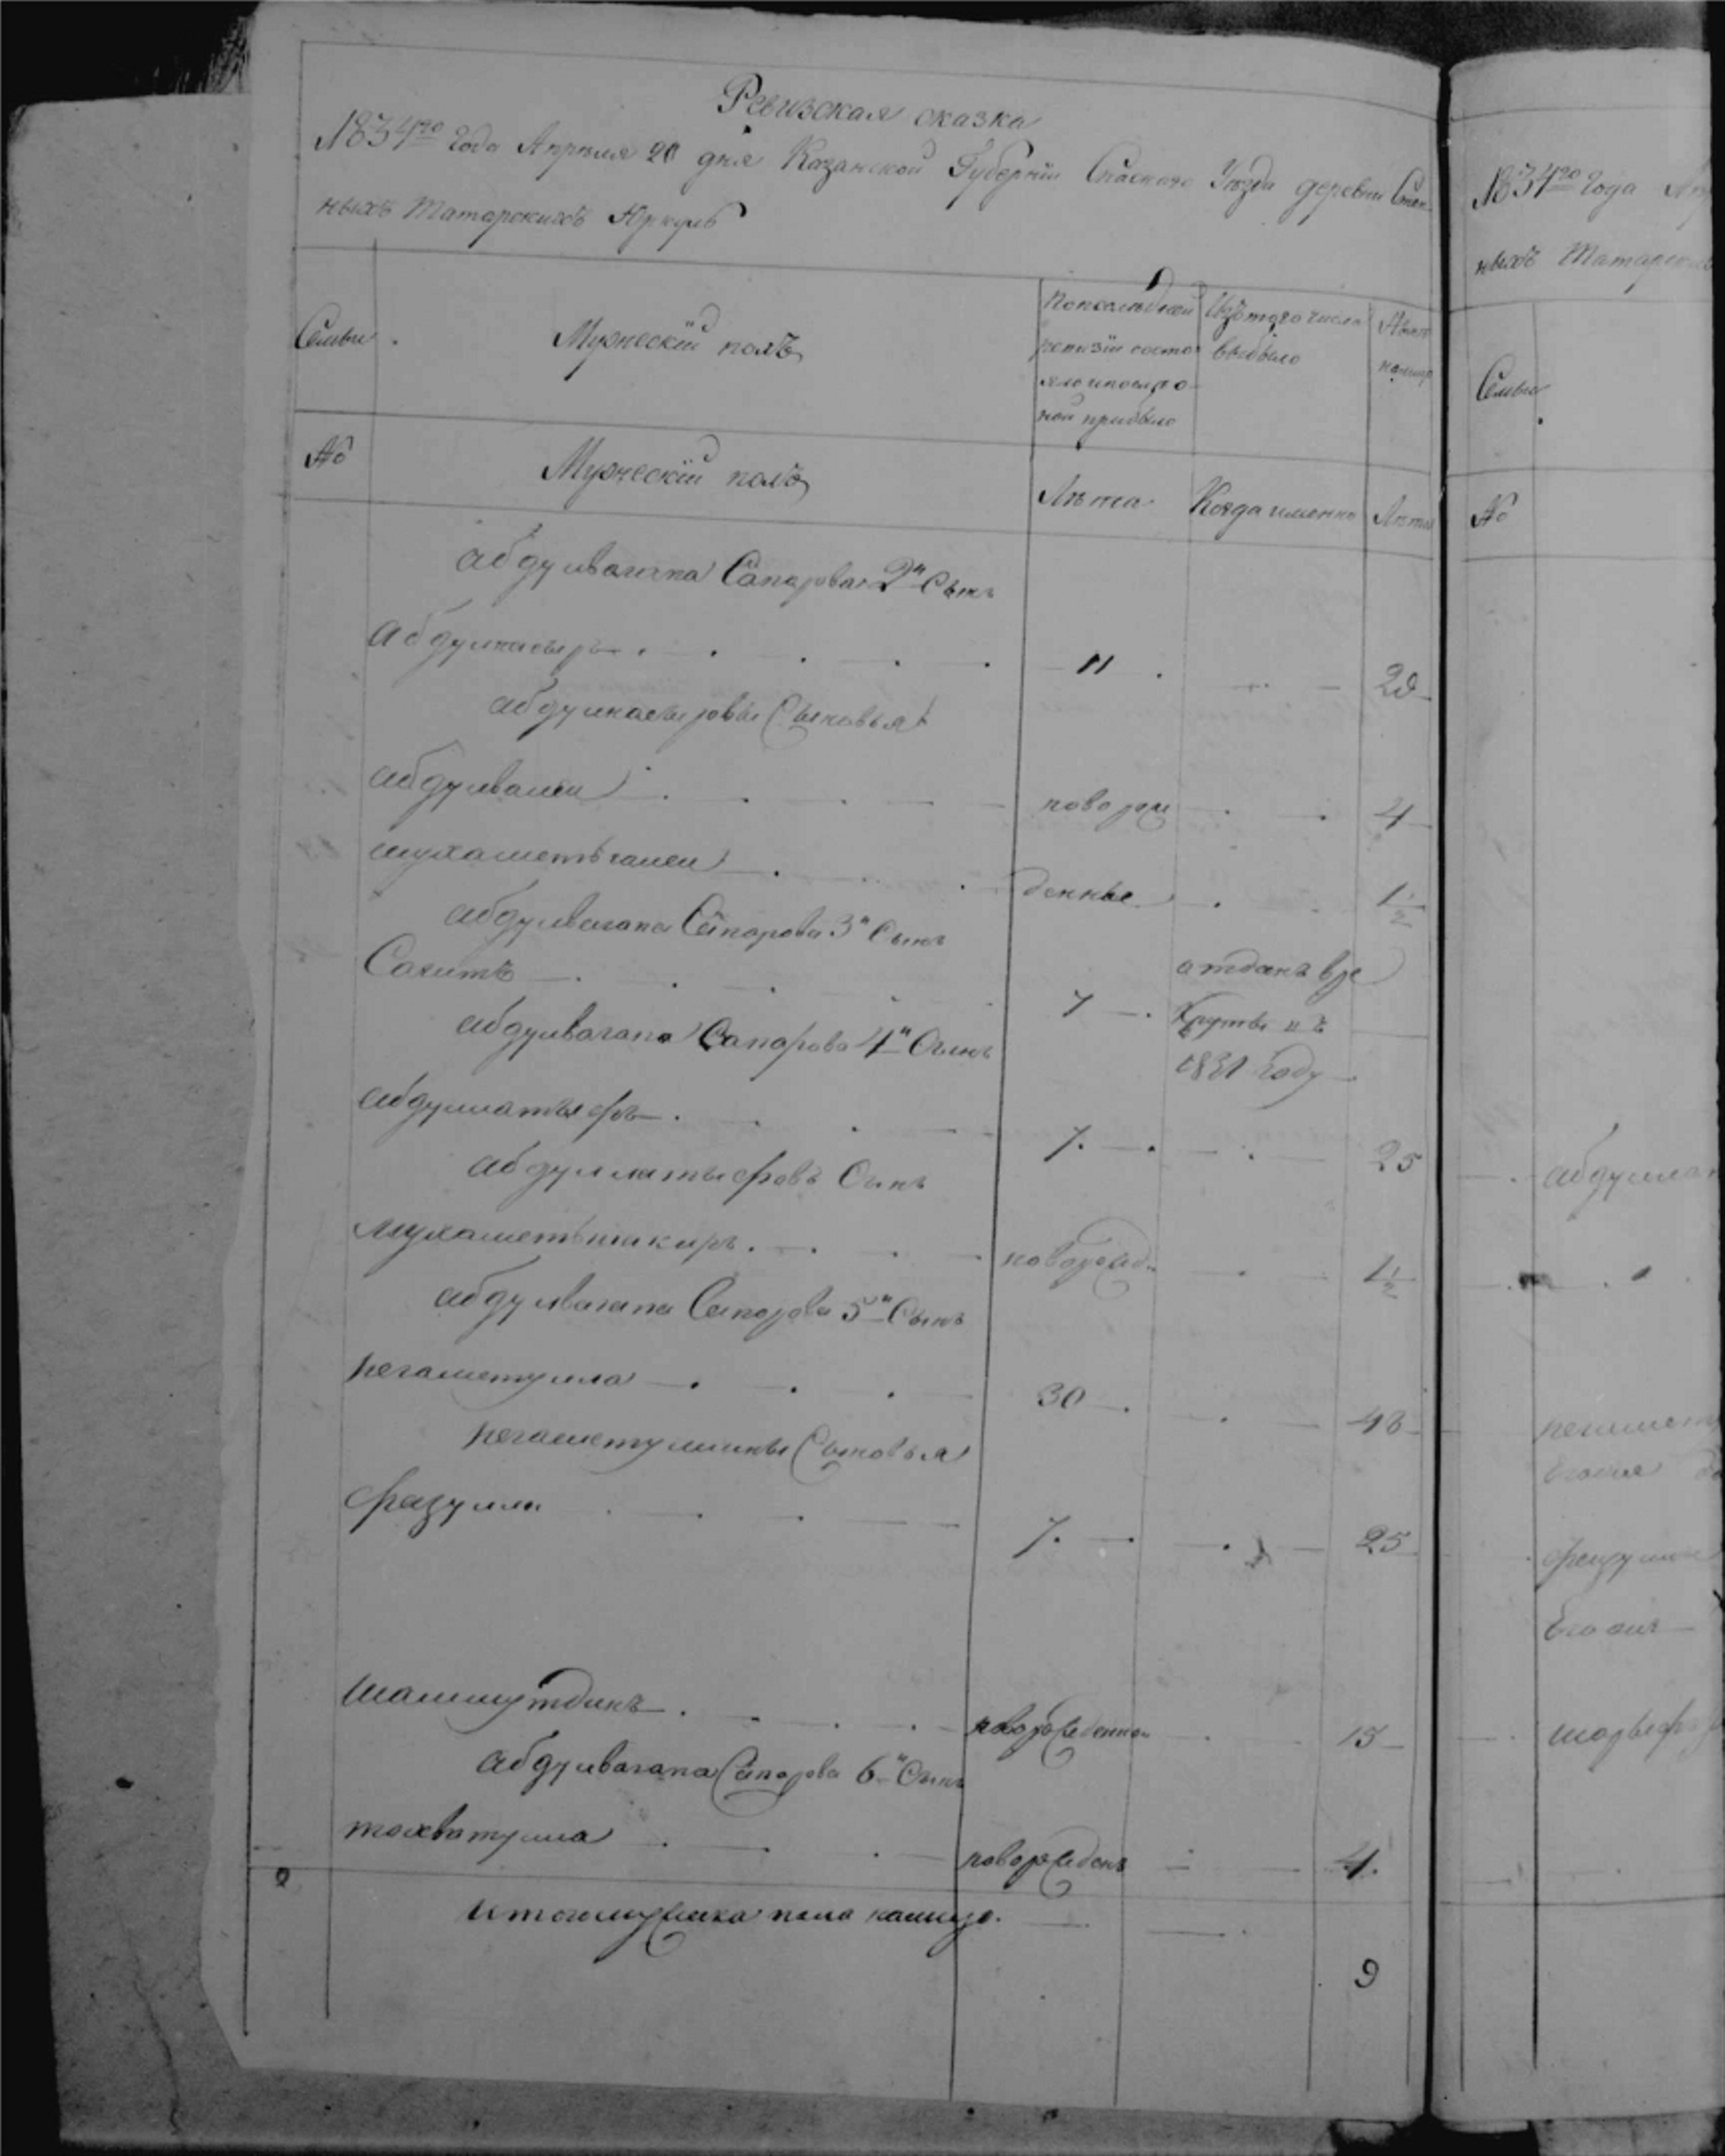 Ревизская сказка
1834го Года Апреля 20 дня Казанской Губернiи Спаскаго Уезда деревни Степ
ныхъ Татарскихъ Юркуль
Семьи
Мужескiй полъ
По последней
ревизiи состо
яло и после о
ной прибыло
Изъ того числа
выбыло
Ныне
на лицо
№
Мужескiй полъ
Лета
Когда именно
Лета
абдулвагапа Сапарова 2й Сынъ
абдулнасыръ 11 29
абдулнасыровы Сыновья
абдулвалей новорож 4
мухаметьгалеи денные 1½
абдулвагапа Сапарова 3й Сынъ
Сагитъ 7 отданъ в ре
круты въ
1831 Году
абдулвагапа Сапарова 4й Сынъ
абдуллатыфъ 7 25
абдуллатыфовъ Сынъ
мухаметьшакиръ новорожд. 1½
абдулвагапа Сапарова 5й Сынъ
негаметулла 30 48
негаметуллины Сыновья
фазулла 7 25
шамшутдинъ новорожденной 15
абдулвагапа Сапарова 6й Сынъ
тохватулла новорожденъ 4
итого мужеска пола налицо
9
1834го Года
ныхъ Татарских
Семьи
№
абдуллат
негамет
фазулли
Его